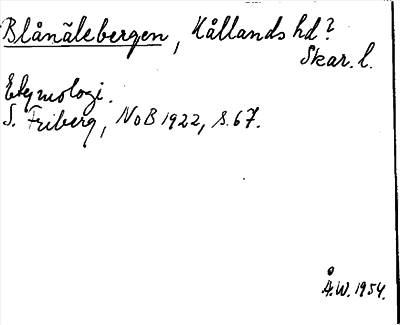 Blånälebergen, Kållands hd?
Skar. l.
Etymologi.
S. Friberg, NoB 1922, s. 67.
Å.W. 1954.